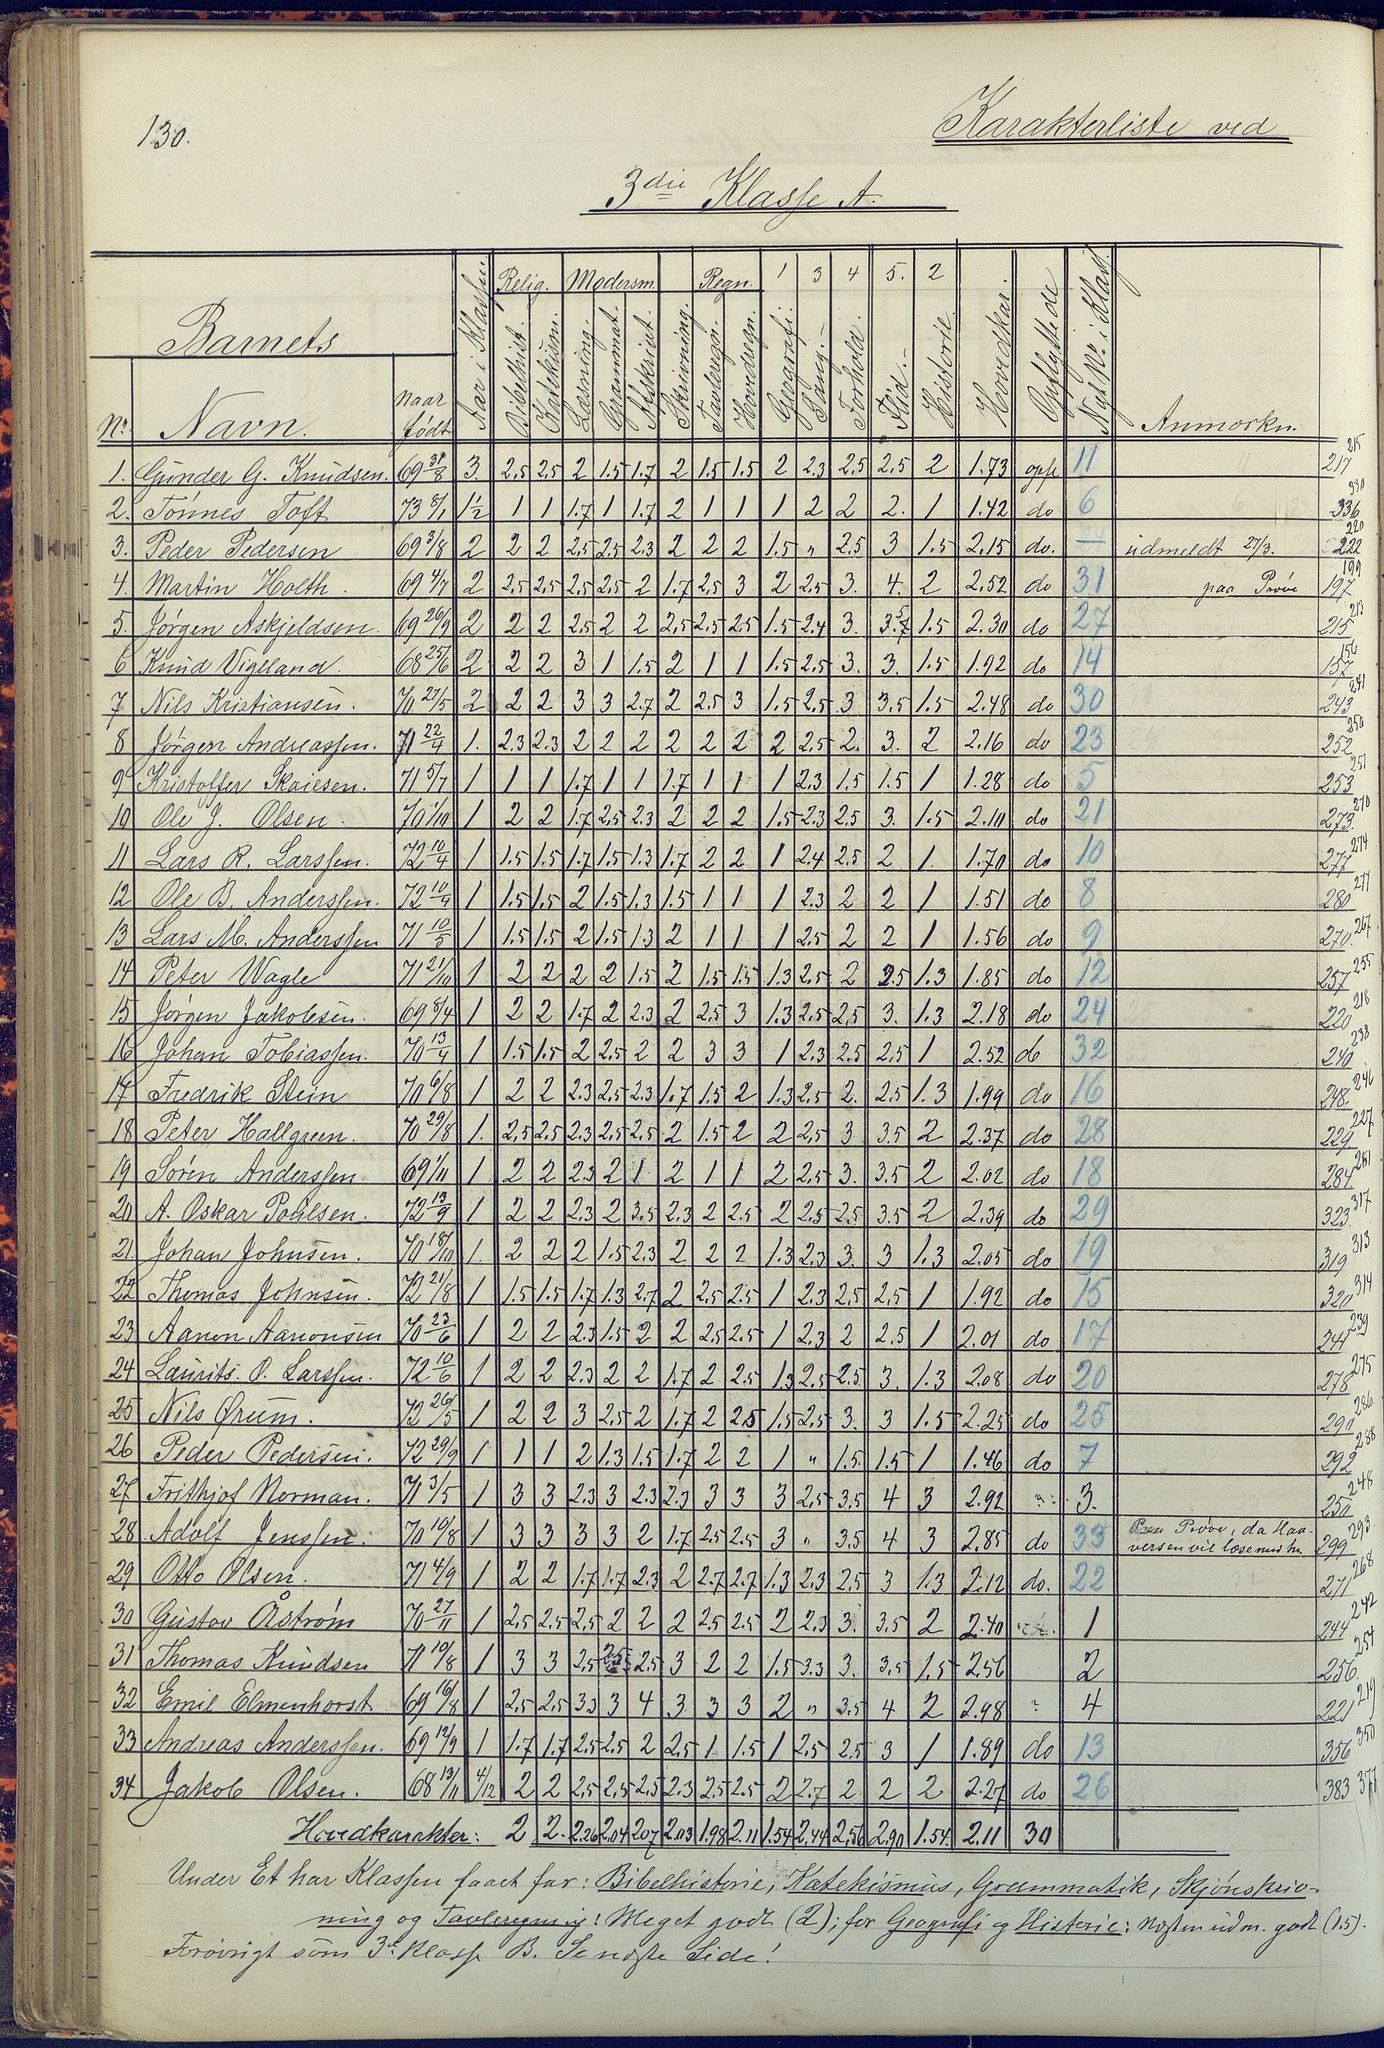 130.
Karakterliste ved
3die Klasse A.
Relig. Modersm. Regn. 1 3 4 5. 2
Barnets
No. Navn. naar født Aar i Klassen. Bibelhist. Katekism. Læsning. Grammat. Retskrivt. Skrivning. Tavleregn. Hovedregn. Geografi. Sang. Forhold. Flid. Historie. Hovedkar. Opflyttede Nyt No. i Klass. Anmærkn.
1. Gunder G. Knudsen. 69 31/8 3. 2.5 2.5 2 1.5 1.7 2 1.5 1.5 2 2.3 2.5 2.5 2 1.73 opfl 11 217 215
2. Tönnes Toft 73 8/1 1 1/2 1 1 1.7 1 1.7 2 1 1 1 2 2 2. 1 1.42 do 6 336 330
3. Peder Pedersen 69 3/8 2 2 2 2.5 2.5 2.3 2 2 2 1.5 " 2.5 3 1.5 2.15 do. — udmeldt 27/3. 222 220
4. Martin Holth. 69 4/7 2 2.5 2.5 2.5 2.5 2 1.7 2.5 3 2 2.5 3. 4. 2 2.52 do 31 paa Prøve 197 199
5. Jørgen Askjeldsen. 69 26/9 2 2 2 2.5 2 2 2.5 2.5 2.5 1.5 2.4 3. 3.5 1.5 2.30 do 27 215 213
6 Knud Vigeland. 68 25/6 2 2 2 3 1 1.5 2 1 1 1.5 2.5 3. 3. 1.5 1.92 do 14 157 156
7 Nils Kristiansen. 70 27/5 2 2 2 3 3 2.7 2 2.5 3 1.5 2.5 3 3.5 1.5 2.48 do 30 243 241
8 Jørgen Andreassen. 71 22/4 1. 2.3 2.3 2 2 2 2 2 2 2 2.5 2. 3. 2 2.16 do 23 252 250
9 Kristoffer Skaiesen. 71 5/7 1 1 1 1.7 1 1 1.7 1 1 1 2.3 1.5 1.5 1 1.28 do 5 253 251
10 Ole J. Olsen. 70 1/10 1 2 2 1.7 2.5 2.3 2 2 2 1.5 2.3 2.5 3. 1.5 2.10 do 21 273. 270
11 Lars R. Larssen. 72 10/4 1 1.5 1.5 1.7 1.5 1.3 1.7 2 2 1 2.4 2.5 2 1. 1.70 do 10 277 274
12 Ole B. Anderssen. 72 10/4 1 1.5 1.5 2 1.5 1.3 1.5 1 1 1 2.3 2 2 1 1.51 do 8 280 277
13 Lars M. Anderssen 71 10/5 1 1.5 1.5 2 1.5 1.3 2 1 1 1 2.5 2 2 1 1.56 do 9 270. 267
14 Peter Wagle 71 21/10 1 2 2 2 2 1.5 2 1.5 1.5 1.3 2.5 2 2.5 1.3 1.85 do 12 257 255
15 Jørgen Jakobsen. 69 8/4 1 2 2 1.7 2 2.3 2 2.5 3 1.3 2.5 2.5 3. 1.3 2.18 do 24 220 218
16 Johan Tobiassen. 70 13/4 1 1.5 1.5 2 2.5 2 2 3 3 1 2.3 2.5 2.5 1 2.52 do 32 240 238
17 Fredrik Stein 70 6/8 1 2 2 2.3 2.5 2.3 1.7 1.5 2 1.3 2.5 2. 2.5 1.3 1.99 do 16 248. 246
18 Peter Hallgreen. 70 29/8 1. 2.5 2.5 2.3 2.5 2.5 2 1.5 2 2 2.5 3 3.5 2 2.37 do 28 229 227
19 Sören Anderssen. 69 1/11 1 2 2 2.3 2 1 2 1 1 2 2.5 3. 3.5 2 2.02 do 18 284 281
20 A. Oskar Poulsen. 72 13/9 1 2 2 2.3 2 3.5 2.3 2 2.5 2 2.5 2.5 3.5 2 2.39 do 29 323. 317
21 Johan Johnsen. 70 18/10 1. 2 2 2 1.5 2.3 2 2 2 1.3 2.3 3. 3 1.3 2.05 do 19 319 313
22 Thomas Johnsen. 72 21/8 1 1.5 1.5 1.7 1.3 2.7 2 2.5 2.5 1 2.3 2.5 2.5 1 1.92 do 15 320 314
23 Aanon Aanonsen 70 23/6 1 2 2 2.3 1.5 2 2 2.5 2.5 1 2.3 2 2.5 1 2.01 do 17 241 239
24 Laurits. O. Larssen. 72 10/6 1 2 2 2.3 2 2 1.7 2 2.5 1.3 2.5 2.5. 3. 1.3 2.08 do 20 278 275
25 Nils Ørum. 72 26/5 1 2 2 3 2.5 2 1.7 2 2.5 1.5 2.5 3. 3 1.5 2.25 do 25 290 286
26 Peder Pedersen. 72 29/9 1 1 1 2 1.3 1.5 1.7 2 2 1 " 1.5. 1.5 1 1.46 do 7 292 288
27 Frithjof Norman. 71 3/5 1 3 3 2.3 3 2.3 2.3 3 3 3 2.5 3.5 4 3 2.92 3. 250 248
28 Adolf Jenssen. 70 10/8 1 3 3 3 3 2 1.7 2.5 2.5 3 " 3.5 4 3 2.85 do 33 Paa Prøve, da Haa-
versen vil læse med ham 299 293
29 Otto Olsen. 71 4/9 1 2 2 1.7 1.7 2.3 2 2.7 2.7 1.3 2.3 2.5 3 1.3 2.12 do. 22 271 268
30 Gustav Åström 70 27/11 1 2.5 2.5 2.5 2 2 2 2.5 2.5 2 2.3 3. 3.5 2 2.40 1 244 242
31 Thomas Knudsen 71 10/8 1 3 3 2.5 2.5 2.5 3 2 2 1.5 3.3 3. 3.5 1.5 2.56 2 256. 254
32 Emil Elmenhorst 69 16/8 1 2.5 2.5 3.3 3 4 3 3 3 2 " 3.5 4 2 2.98 ? 4 221 219
33 Andreas Anderssen. 69 12/9 1 1.7 1.7 2.5 2.5 2 2.5 1 1.5 1 2.5 2.5 3 1 1.89 do 13 356 350
34 Jakob Olsen. 68 13/11 4/12 2 2 2.5 2.5 2.5 2.3 2.5 2.5 2 2.7 2 2 2 2.27 do 26 383 377
Hovedkarakter: 2 2. 2.26 2.04 2.07 2.03 1.98 2.11 1.54 2.44 2.56 2.90 1.54. 2.11 30
Under Et har Klassen faaet for: Bibelhistorie, Katekismus, Grammatik, Skjønskriv-
ning og Tavleregning: Meget godt (2); for Geografi og Historie: Næsten udm. godt (1.5).
Forøvrigt som 3die Klasse B. Se næste Side!